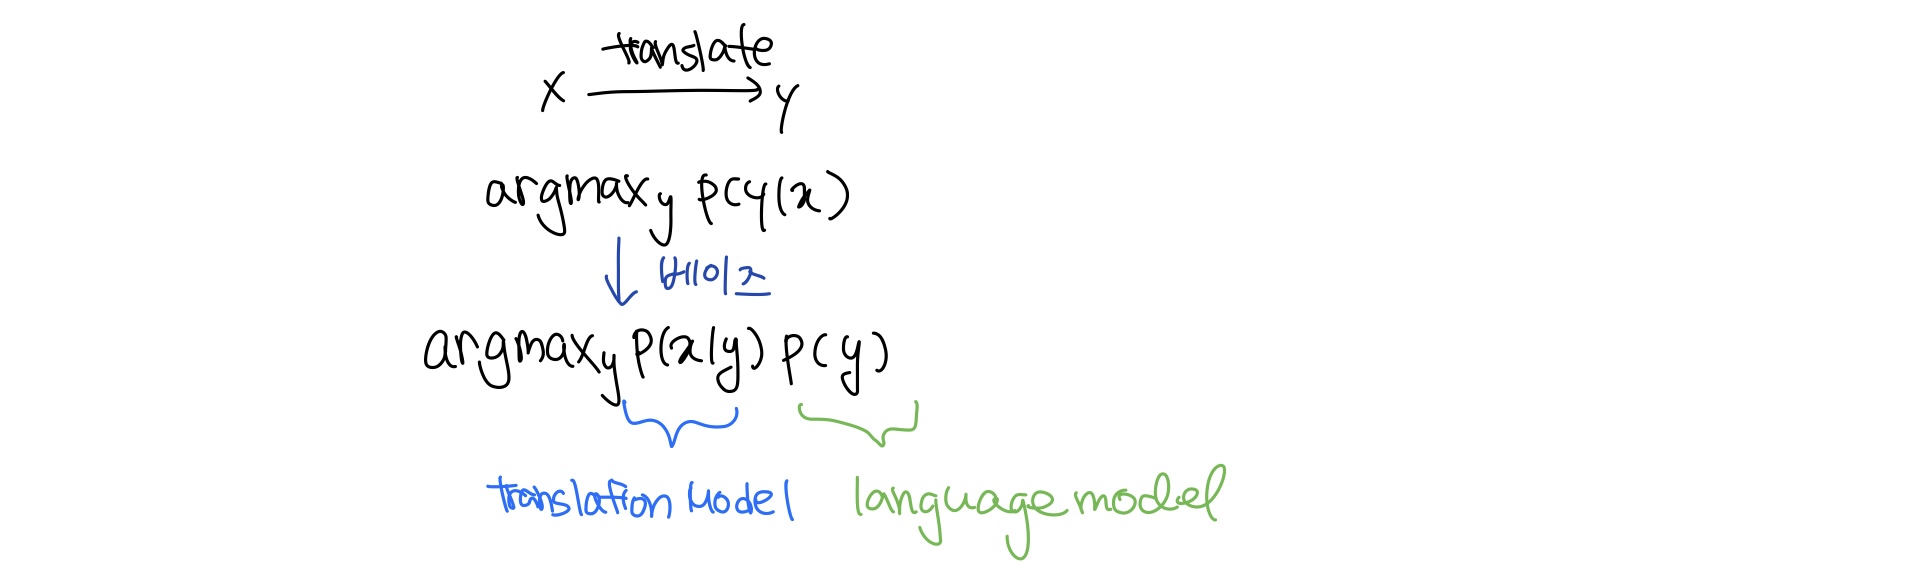 translate
x → y
argmax y p(y|x)
↓ 베이즈
argmax y p(x|y) p(y)
translation Model language model